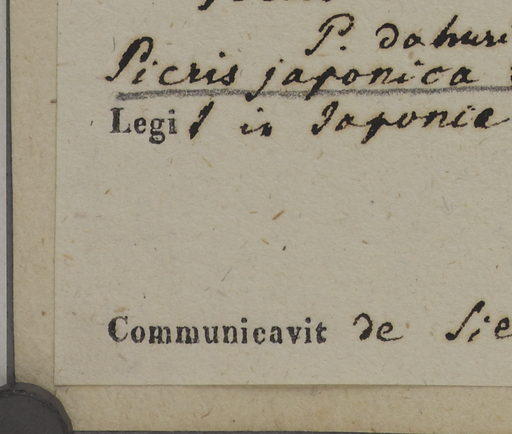 P. dahuri
Picris japonica
Legit in Japonia
Communicavit de Sie